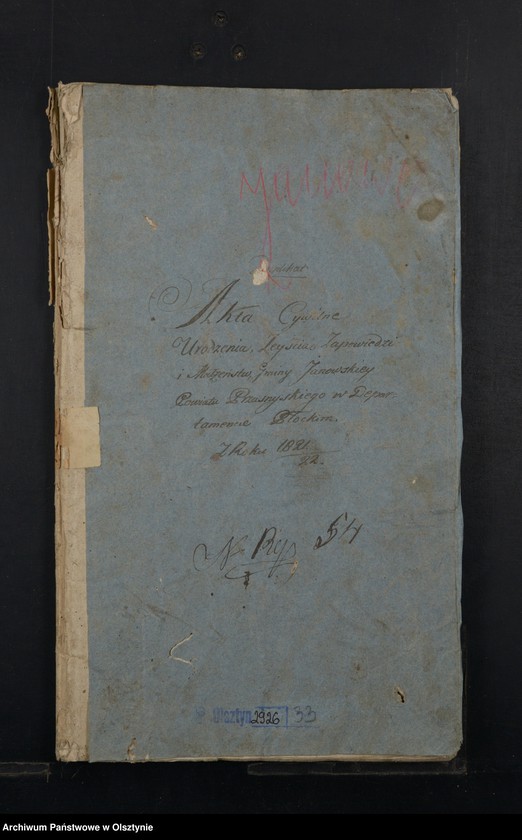 Akta Cywilne
Urodzenia, Zeyścia Zapowiedzi
i Małżenstw, Gminy Janowskiey
Powiatu Przasnyskiego w Depar
tamencie Płockim.
Z Roku 1821
22.
N Rep 54
Olsztyn 2926 33
Archiwum Państwowe w Olsztynie